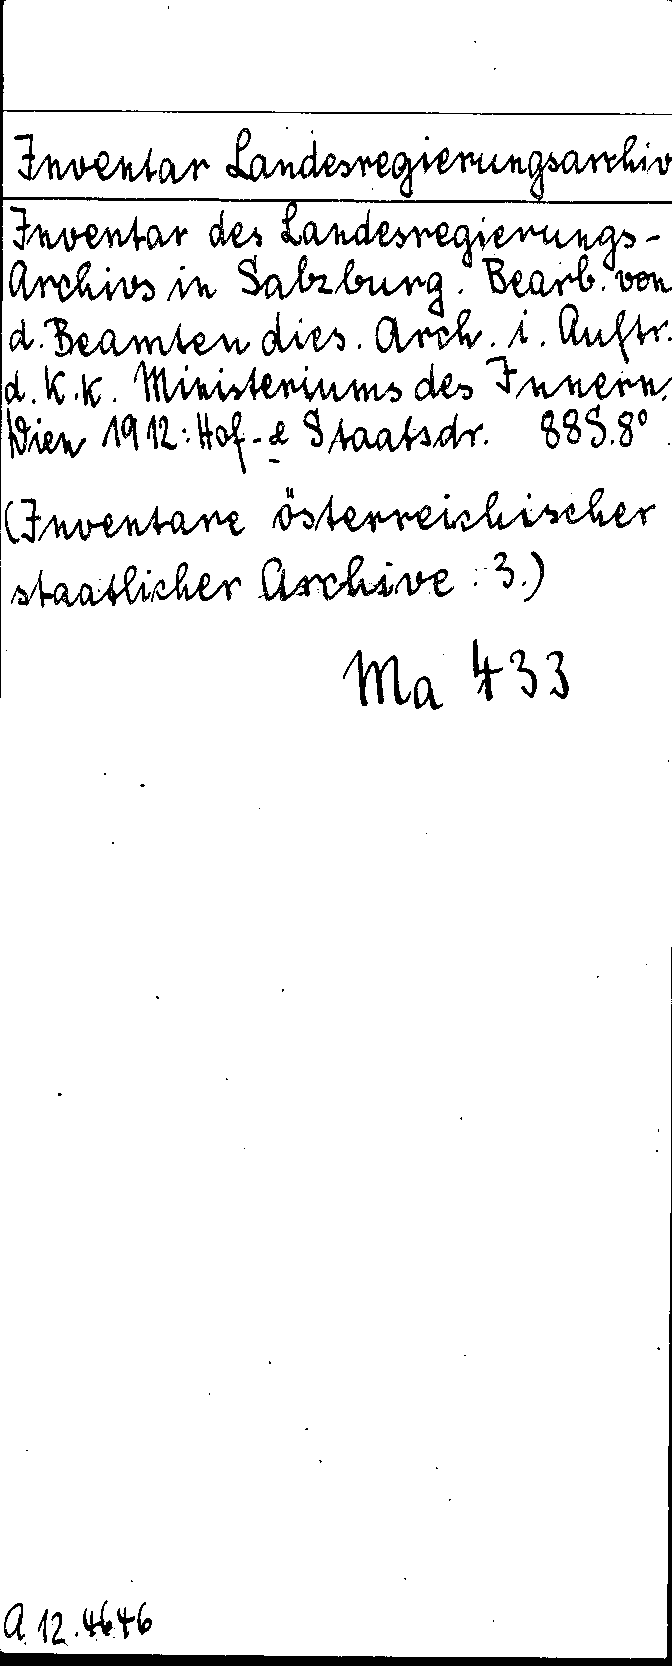 Inventar Landesregierungsarchiv
Inventar des Landesregierungs-
Archivs in Salzburg. Bearb. von
d. Beamten dies. Arch. i. Auftr.
d. K.K. Ministeriums des Innern.
Wien 1912: Hof- & Staatsdr. 88S. 8°
(Inventare österreichischer
staatlicher Archive : 3.)
Ma 433
A 12.4646